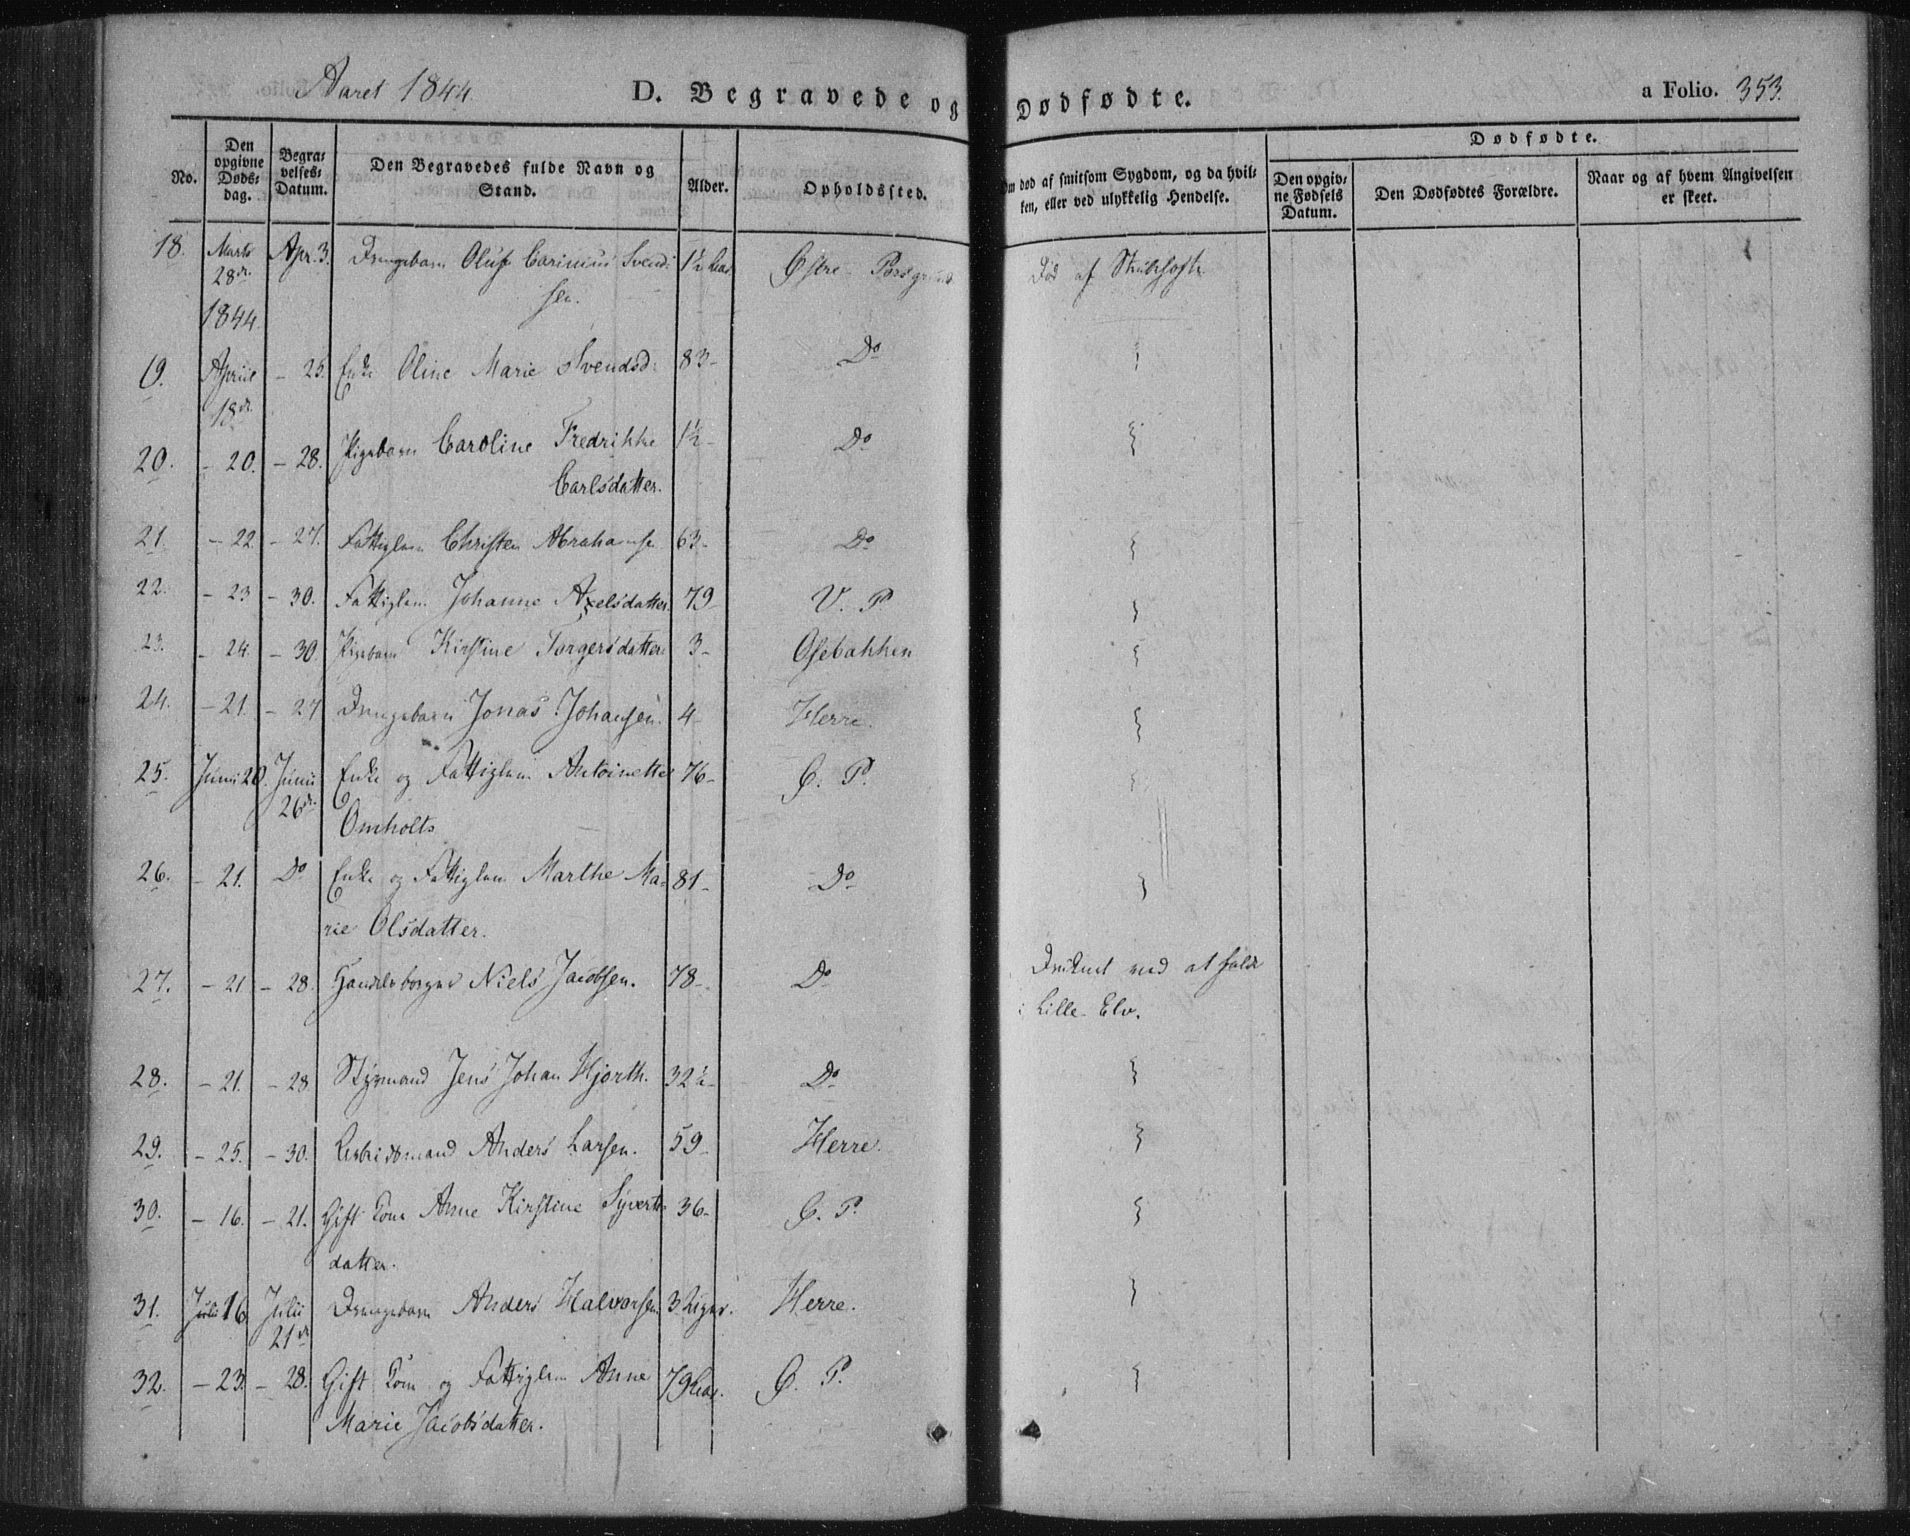 Aaret 1844 D. Begravede og Dødfødte. a Folio. 353.
No. Den opgivne Døds-dag. Begravelses-Datum. Den Begravedes fulde Navn og Stand. Alder. Opholdssted. Om død af smitsom Sygdom, og da hvilken, eller ved ulykkelig Hendelse. Dødfødte.
Den opgivne Fødsels Datum. Den Dødfødtes Forældre. Naar og af hvem Angivelsen er skeet.
18. Marts 28de Apr. 3. Drengebarn Oluf Carinius Svend- 1½ Aar Østre Porsgrund Død af Strubehoste
sen.
1844.
19. April 18de - 25. Enke Oline Marie Svendsd: 83- Do
20. - 20. - 28. Pigebarn Caroline Fredrikke 1½- Do
Carlsdatter.
21. - 22. - 27. Fattiglem Christen Abrahamsen 63- Do
22. - 23 - 30. Fattiglem Johanne Axelsdatter. 79- V. P
23. - 24. - 30. Pigebarn Kirstine Torgersdatter. 3- Osebakken
24. - 21. - 27 Drengebarn Jonas Johansen. 4- Herre.
25. Junii 20. Junii 26de Enke og Fattiglem Antoinette 76- Ø. P.
Omholts
26. - 21. Do Enke og Fattiglem Marthe Ma- 81- Do
rie Olsdatter.
27. - 21 - 28. Handelsborger Niels Jacobsen. 78- Do Druknet ved at falde
i Lille-Elv.
28. - 21. - 28 Styrmand Jens Johan Hjorth. 32½- Do
29. - 25. - 30. Arbeidsmand Anders Larsen. 59- Herre.
30. - 16. - 21. Gift Kone Anne Kirstine Syverts- 36- Ø. P.
datter.
31. Julii 16 Julii 21de Drengebarn Anders Halvorsen 3 Uger. Herre.
32. - 23. - 28. Gift Kone og Fattiglem Anne 79 Aar. Ø. P.
Marie Jacobsdatter.